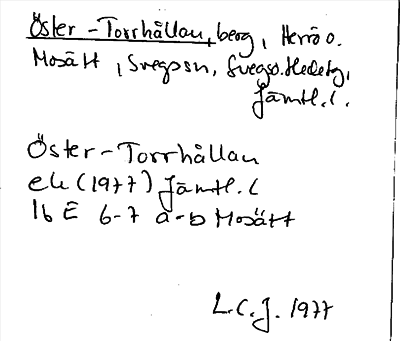 Öster-Torrhållan, berg, Herrö o.
Mosätt, Svegssn, Svegs o. Hedetg,
Jämtl. l.
Öster-Torrhållan
ek (1977) Jämtl. l
16 E 6-7 a-b Mosätt
L.C.J. 1977